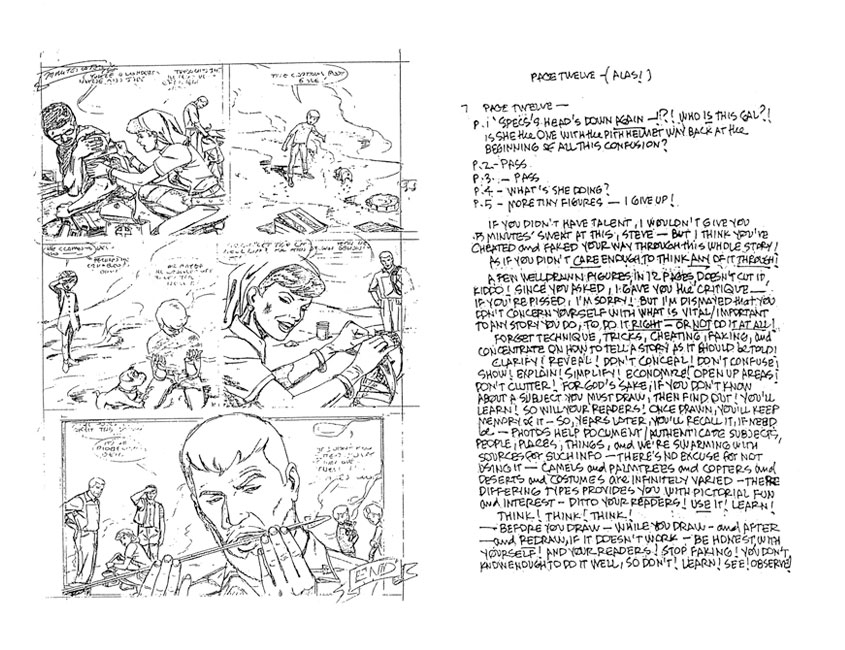 PAGE TWELVE - (ALAS!)
7. PAGE TWELVE —
P. 1 'SPECS'S HEAD'S DOWN AGAIN —!?! WHO IS THIS GAL?!
IS SHE the ONE WITH the PITH HELMET WAY BACK AT the
BEGINNING OF ALL THIS CONFUSION?
P. 2 - PASS
P. 3. — PASS
P. 4 - WHAT'S SHE DOING?
P. 5 - MORE TINY FIGURES — I GIVE UP!
IF YOU DIDN'T HAVE TALENT, I WOULDN'T GIVE YOU
3 MINUTES' SWEAT AT THIS, STEVE — BUT I THINK YOU'VE
CHEATED and FAKED YOUR WAY THROUGH this WHOLE STORY!
AS IF YOU DIDN'T CARE ENOUGH TO THINK ANY OF IT THROUGH!
A FEW WELL DRAWN FIGURES IN 12 PAGES DOESN'T CUT IT,
KIDDO! SINCE YOU ASKED, I GAVE YOU the CRITIQUE —
IF YOU'RE PISSED, I'M SORRY! BUT I'M DISMAYED that YOU
DON'T CONCERN YOURSELF WITH WHAT IS VITAL/IMPORTANT
TO ANY STORY YOU DO, TO DO IT RIGHT — OR NOT DO IT AT ALL!
FORGET TECHNIQUE, TRICKS, CHEATING, FAKING, and
CONCENTRATE ON HOW TO TELL A STORY AS IT SHOULD be TOLD!
CLARIFY! REVEAL! DON'T CONCEAL! DON'T CONFUSE,
SHOW! EXPLAIN! SIMPLIFY! ECONOMIZE! OPEN UP AREAS!
DON'T CLUTTER! FOR GOD'S SAKE, IF YOU DON'T KNOW
ABOUT A SUBJECT YOU MUST DRAW, THEN FIND OUT! YOU'LL
LEARN! SO WILL YOUR READERS! ONCE DRAWN, YOU'LL KEEP
MEMORY of IT — SO, YEARS LATER, YOU'LL RECALL IT, IF NEED
be — PHOTOS HELP DOCUMENT/AUTHENTICATE SUBJECTS,
PEOPLE, PLACES, THINGS, and WE'RE SWARMING WITH
SOURCES for SUCH INFO — THERE'S NO EXCUSE for NOT
USING IT — CAMELS and PALMTREES and COPTERS and
DESERTS and COSTUMES are INFINITELY VARIED — THEIR
DIFFERING TYPES PROVIDES YOU WITH PICTORIAL FUN
and INTEREST — DITTO YOUR READERS! USE IT! LEARN!
THINK! THINK! THINK!
— BEFORE YOU DRAW — WHILE YOU DRAW — and AFTER
— and REDRAW, IF IT DOESN'T WORK — BE HONEST WITH
YOURSELF! AND YOUR READERS! STOP FAKING! YOU DON'T
KNOW ENOUGH TO DO IT WELL, SO DON'T! LEARN! SEE! OBSERVE!
END